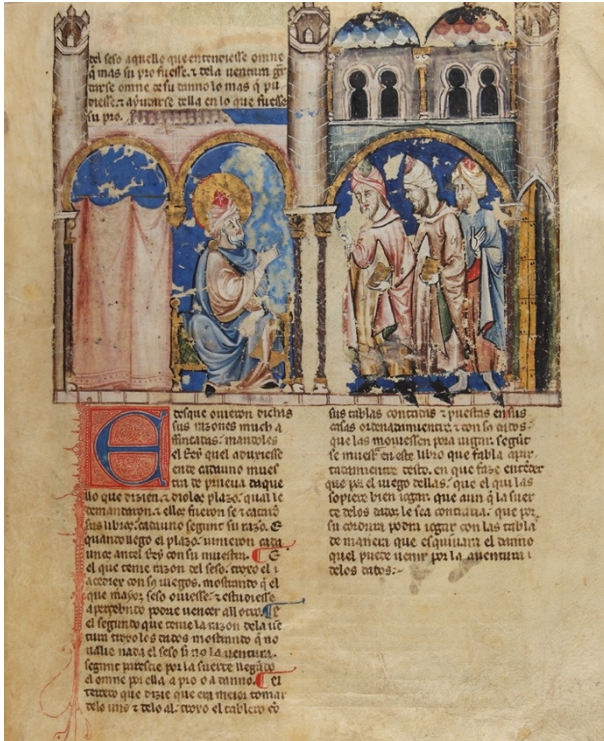 del seso aquello que entendiesse omne
q̃ mas su pro fuesse. ⁊ dela uentura gr̃
darse omne de su danno lo mas q̃ pu
diesse. ⁊ ayudarse della en lo que fuesse
su pro.
Edesque ouieron dichas
sus razones much a
ffincadas: mandoles
el Rey quel aduxiesse
ende cadauno mues
tra de prueua daque
llo que dizien. ⁊ dioles plazo. qual le
demandaron. ⁊ ellos fueron se ⁊ catarõ
sus libros: cadauno segunt su razõ. E
quando llego el plazo. uinieron cada
unos antel Rey con su muestra. ¶ E
el que tenie razon del seso: troxo el
acedrex con sus iuegos. mostrando q̃ el
que mayor seso ouiesse: ⁊ estudiesse
aperçebudo podrie uencer all otro. ¶ E
el segundo que tenie la razon dela uẽ
tura troxo los dados mostrando q̃ no
ualie nada el seso si no la uentura.
segunt paresçie por la suerte llegãdo
el omne por ella a pro o a danno. ¶ El
tercero que dizie que era meior tomar
delo uno ⁊ delo al: troxo el tablero cõ
sus tablas contadas ⁊ puestas en sus
casas ordenadamientre. ⁊ con sos dados
que las mouiessen pora iugar. segũt
se muestra en este libro que fabla apar
tadamientre desto. en que faze entẽder
que por el iuego dellas. que el qui las
sopiere bien iogar que aun q̃ la suer
te delos dados le sea contraria. que por
su cordura podra iogar con las tablas
de manera que esquiuara el danno
quel puede uenir por la auentura
delos dados:-